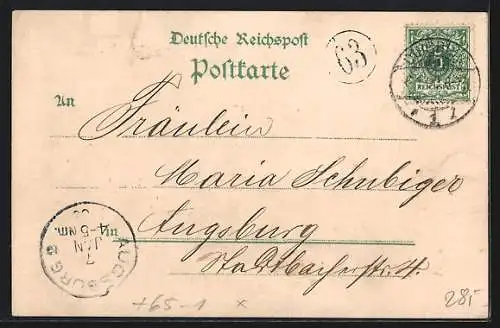 Deutsche Reichspost
63
Postkarte
REICHSPOST
An
Fräulein
Maria Schubiger
in Augsburg
Stadtbacherstr. 4.
AUGSBURG 2
7
JAN
4-5 Nm.
00
+65-1 x
285